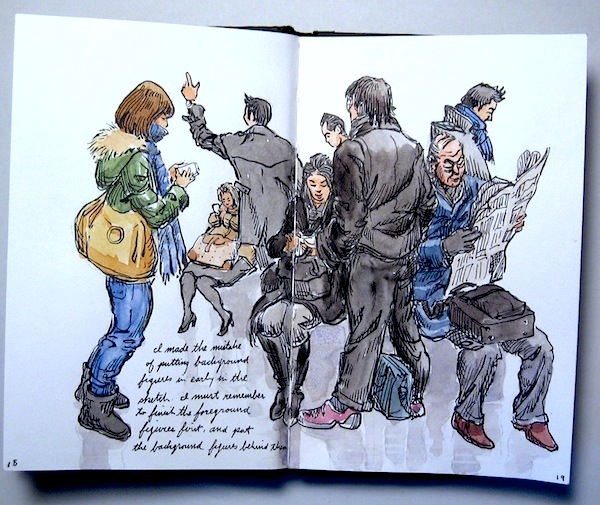 I made the mistake
of putting background
figures in early in the
sketch. I must remember
to finish the foreground
figures first, and put
the background figures behind them
18
19